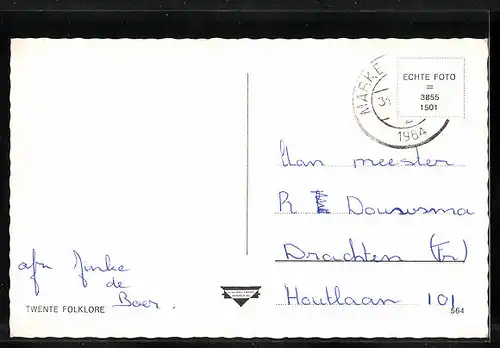 MARKE
31
1964
ECHTE FOTO
=
3855
1501
Aan meester
R Douwsma
Drachten (Fr)
Houtlaan 101
afz Jinke
de
Boer.
TWENTE FOLKLORE
564